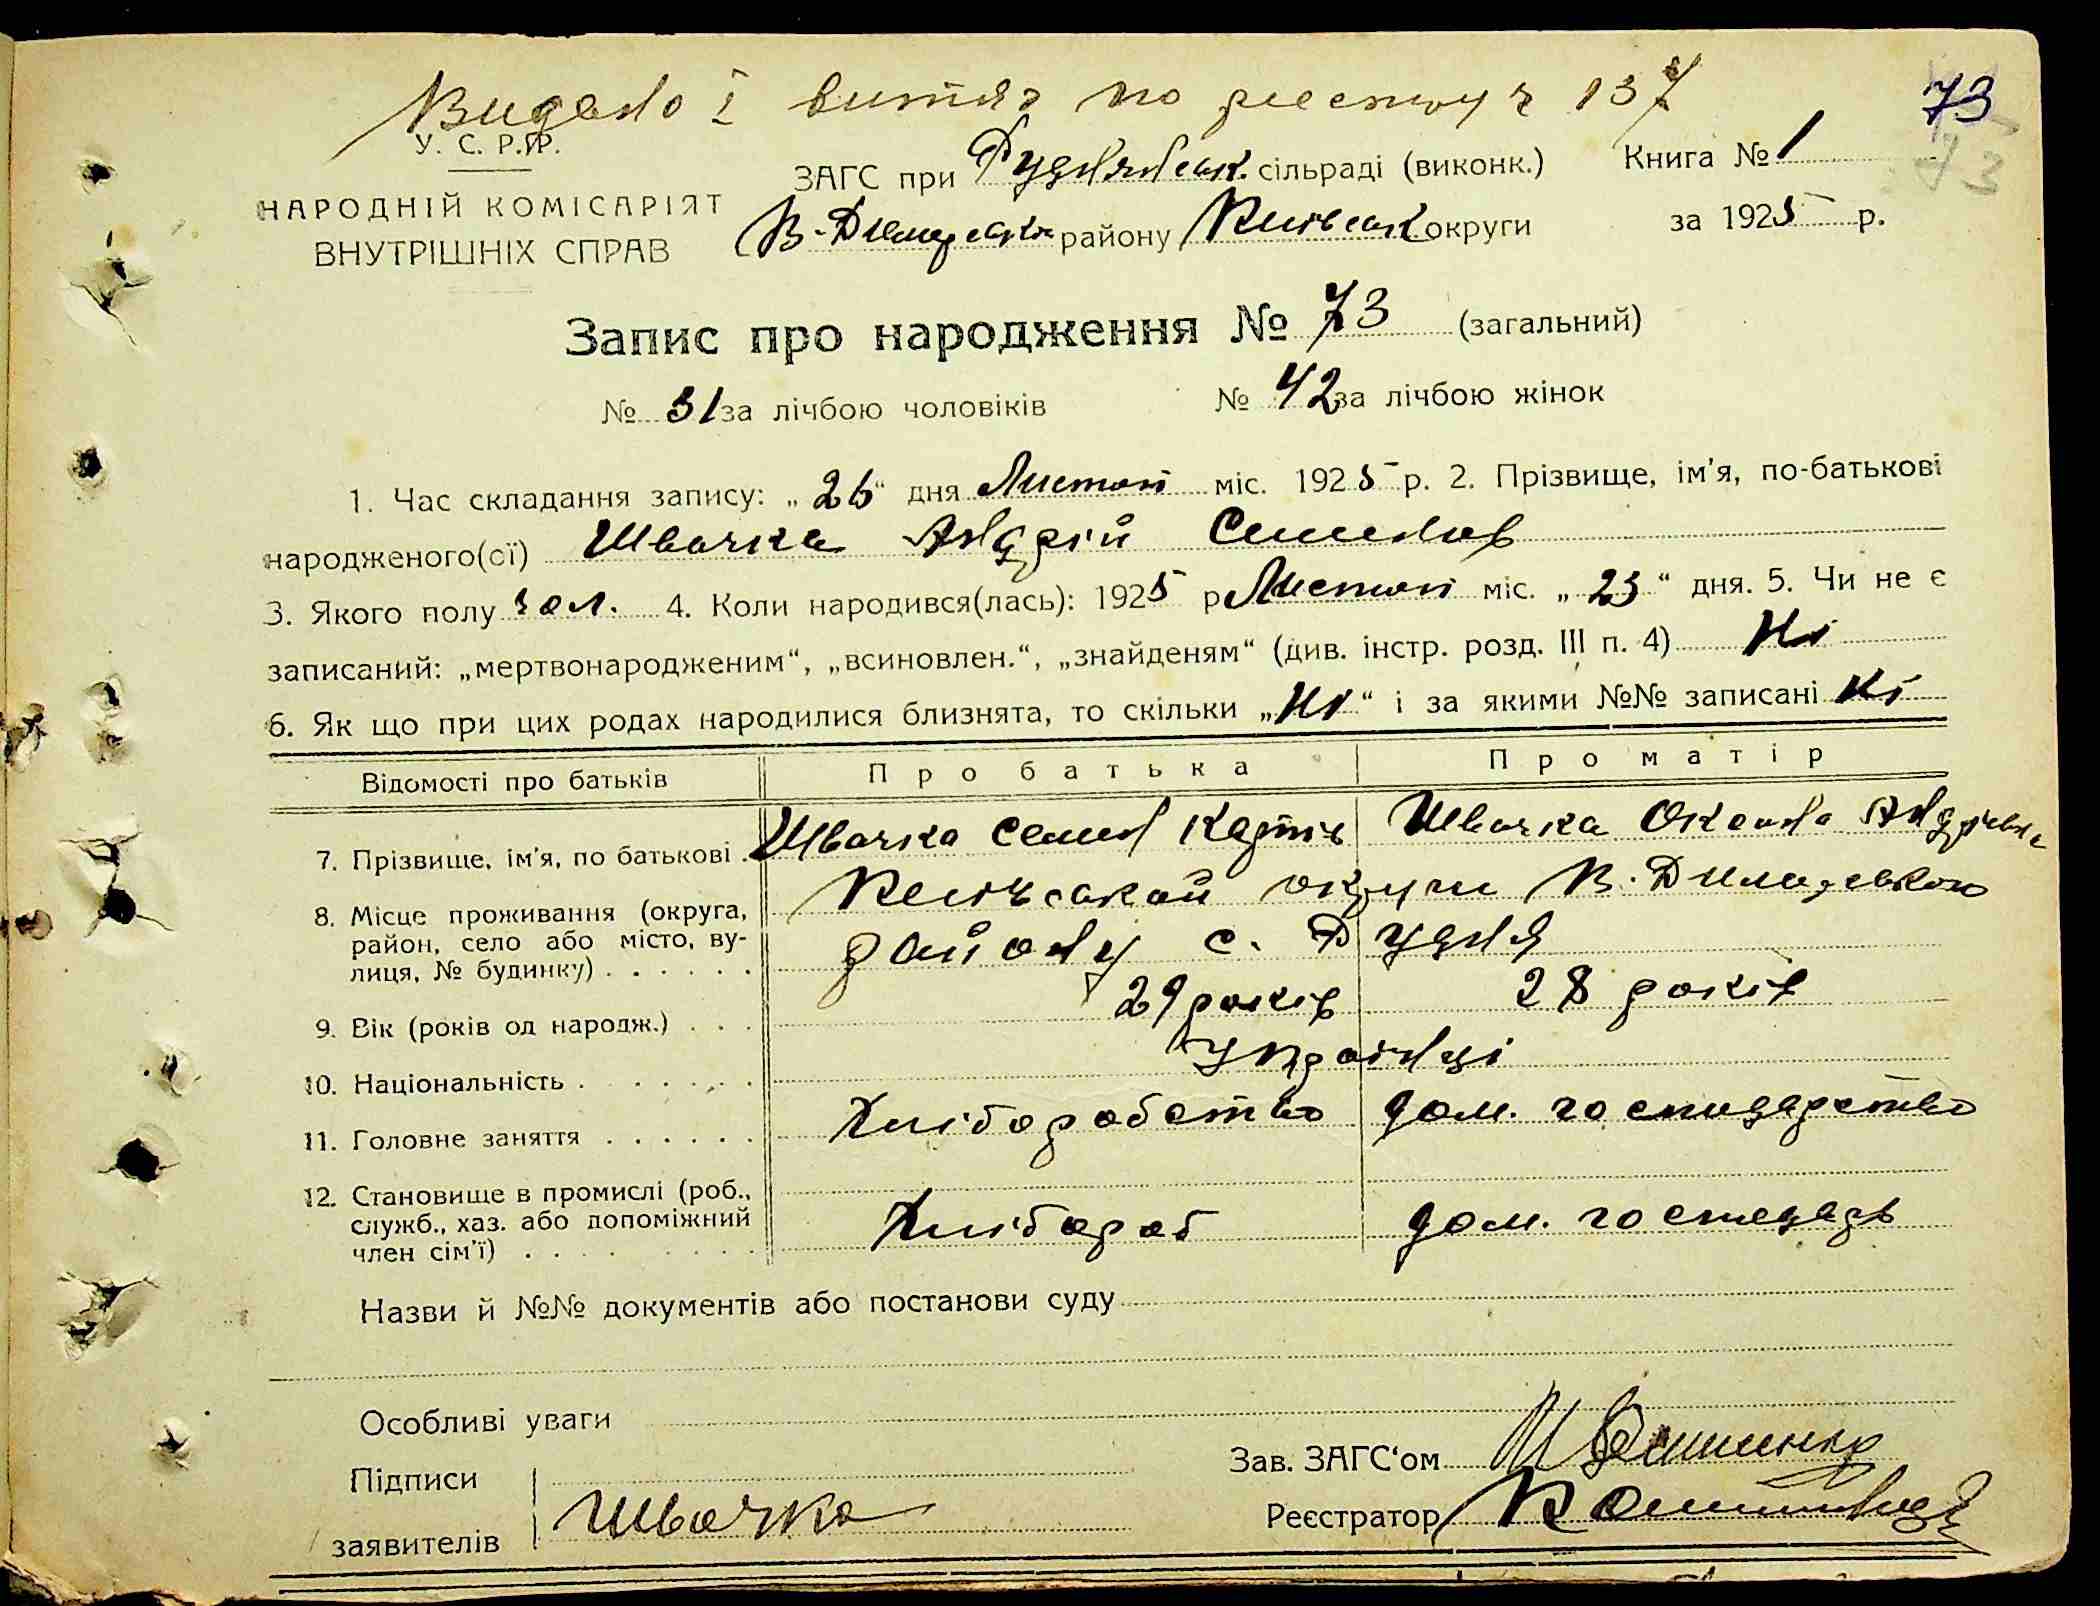 Видано і витяг по реестру ч 137
73
У. С. Р. Р.
73
НАРОДНІЙ КОМІСАРІЯТ
ВНУТРІШНІХ СПРАВ
ЗАГС при Руднянськ. сільраді (виконк.) Книга № 1
В-Димерськ району Київськ округи за 1925 р.
Запис про народження № 73 (загальний)
№ 31 за лічбою чоловіків № 42 за лічбою жінок
1. Час складання запису: „26“ дня Листоп міс. 1925 р. 2. Прізвище, ім'я, по-батькові
народженого(ої) Швачка Андрій Семенов
3. Якого полу чол. 4. Коли народився(лась): 1925 р Листоп міс. „23“ дня. 5. Чи не є
записаний: „мертвонародженим“, „всиновлен.“, „знайденям“ (див. інстр. розд. III п. 4) Ні
6. Як що при цих родах народилися близнята, то скільки „Ні“ і за якими №№ записані Ні
Відомості про батьків Про батька Про матір
7. Прізвище, ім'я, по батькові . Швачка Семен Карпів Швачка Оксана Андріевна
8. Місце проживання (округа, район, село або місто, вулиця, № будинку) . . . . . .
Київськой округи В. Димерською
району с. Рудня
9. Вік (років од народж.) . . . 29 років 28 років
10. Національність . . . . . . . Українці
11. Головне заняття . . . . . . Хліборобство дом. господарство
12. Становище в промислі (роб., служб., хаз. або допоміжний член сім'ї) . . . . . . . . .
Хлібороб дом. господарь
Назви й №№ документів або постанови суду
Особливі уваги
Підписи
заявителів Швачка
Зав. ЗАГС'ом
Реєстратор